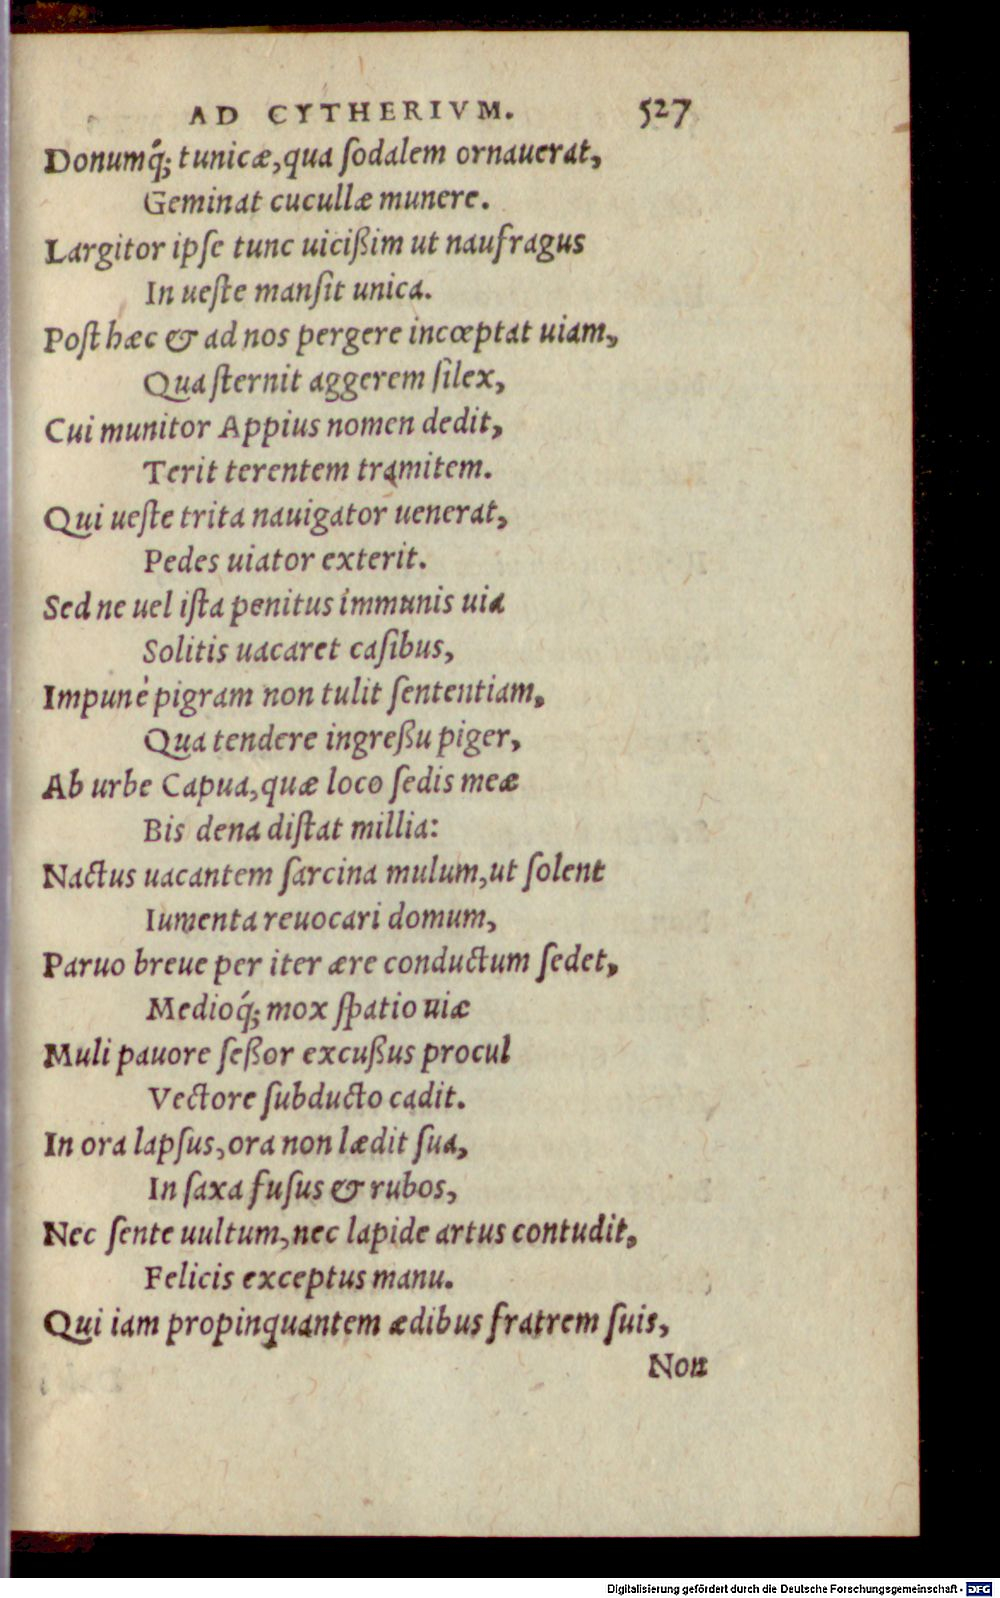 AD CYTHERIVM. 527
Donumq́; tunicæ, qua ſodalem ornauerat,
Geminat cucullæ munere.
Largitor ipſe tunc uicißim ut naufragus
In ueſte manſit unica.
Poſt hæc & ad nos pergere incœptat uiam,
Qua ſternit aggerem ſilex,
Cui munitor Appius nomen dedit,
Terit terentem tramitem.
Qui ueſte trita nauigator uenerat,
Pedes uiator exterit.
Sed ne uel iſta penitus immunis uia
Solitis uacaret caſibus,
Impunè pigram non tulit ſententiam,
Qua tendere ingreßu piger,
Ab urbe Capua, quæ loco ſedis meæ
Bis dena diſtat millia:
Nactus uacantem ſarcina mulum, ut ſolent
Iumenta reuocari domum,
Paruo breue per iter ære conductum ſedet,
Medioq́; mox ſpatio uiæ
Muli pauore ſeßor excußus procul
Vectore ſubducto cadit.
In ora lapſus, ora non lædit ſua,
In ſaxa fuſus & rubos,
Nec ſente uultum, nec lapide artus contudit,
Felicis exceptus manu.
Qui iam propinquantem ædibus fratrem ſuis,
Non
Digitalisierung gefördert durch die Deutsche Forschungsgemeinschaft - DFG